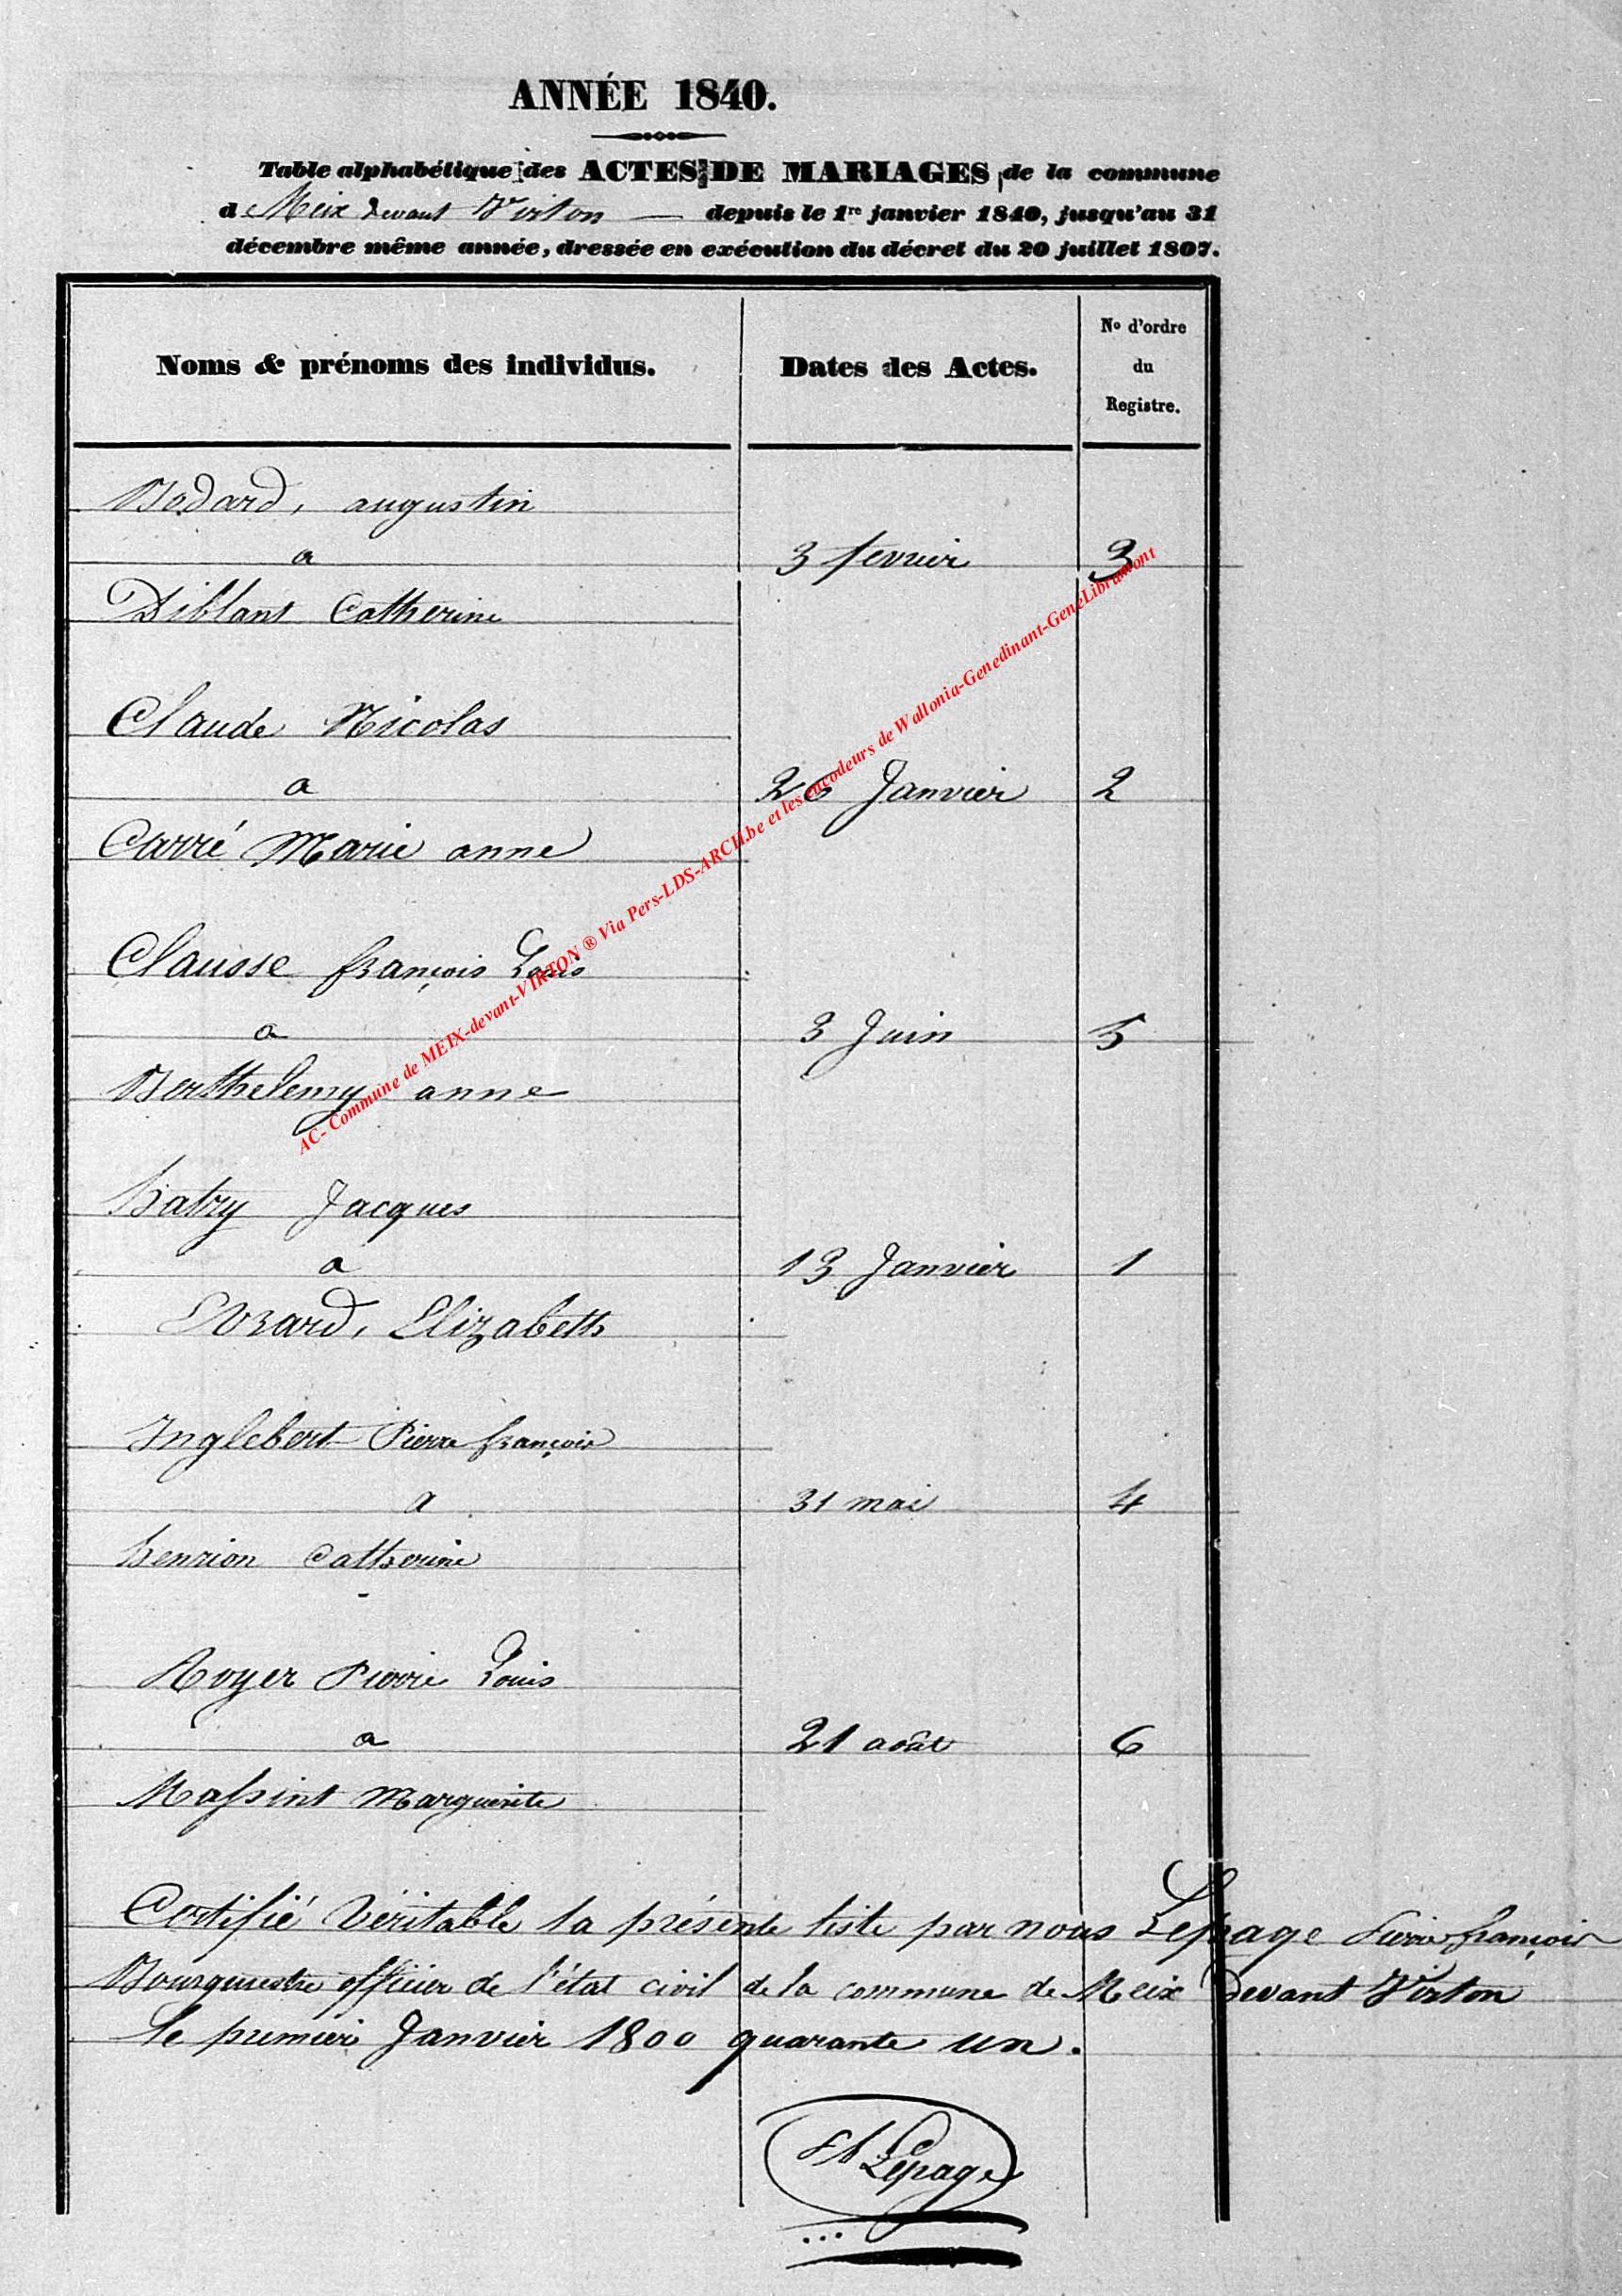 ANNÉE 1840.
Table alphabétique des ACTES DE MARIAGES de la commune
d Meix devant Virton — depuis le 1re janvier 1840, jusqu'au 31
décembre même année, dressée en exécution du décret du 20 juillet 1807.
Noms & prénoms des individus. Dates des Actes. No d'ordre du Registre.
Bodard, augustin
a 3 fevrier 3
Diblant Catherine
Claude Nicolas
a 26 Janvier 2
Carré Marie anne
Clausse françois Louis
a 3 Juin 5
Berthelemy anne
hatry Jacques
a 13 Janvier 1
Evrard, Elizabeth
Inglebert Pierre françois
a 31 mai 4
henrion Catherine
Royer Pierre Louis
a 21 août 6
Massint Marguerite
Certifié Véritable la présente liste par nous Lepage Pierre françois
Bourgmestre officier de l'état civil de la commune de Meix Devant Virton
le premier Janvier 1800 quarante un.
Lepage
AC- Commune de MEIX-devant-VIRTON ® Via Pers-LDS-ARCH.be et les encodeurs de Wallonia-Genedinant-GeneLibramont